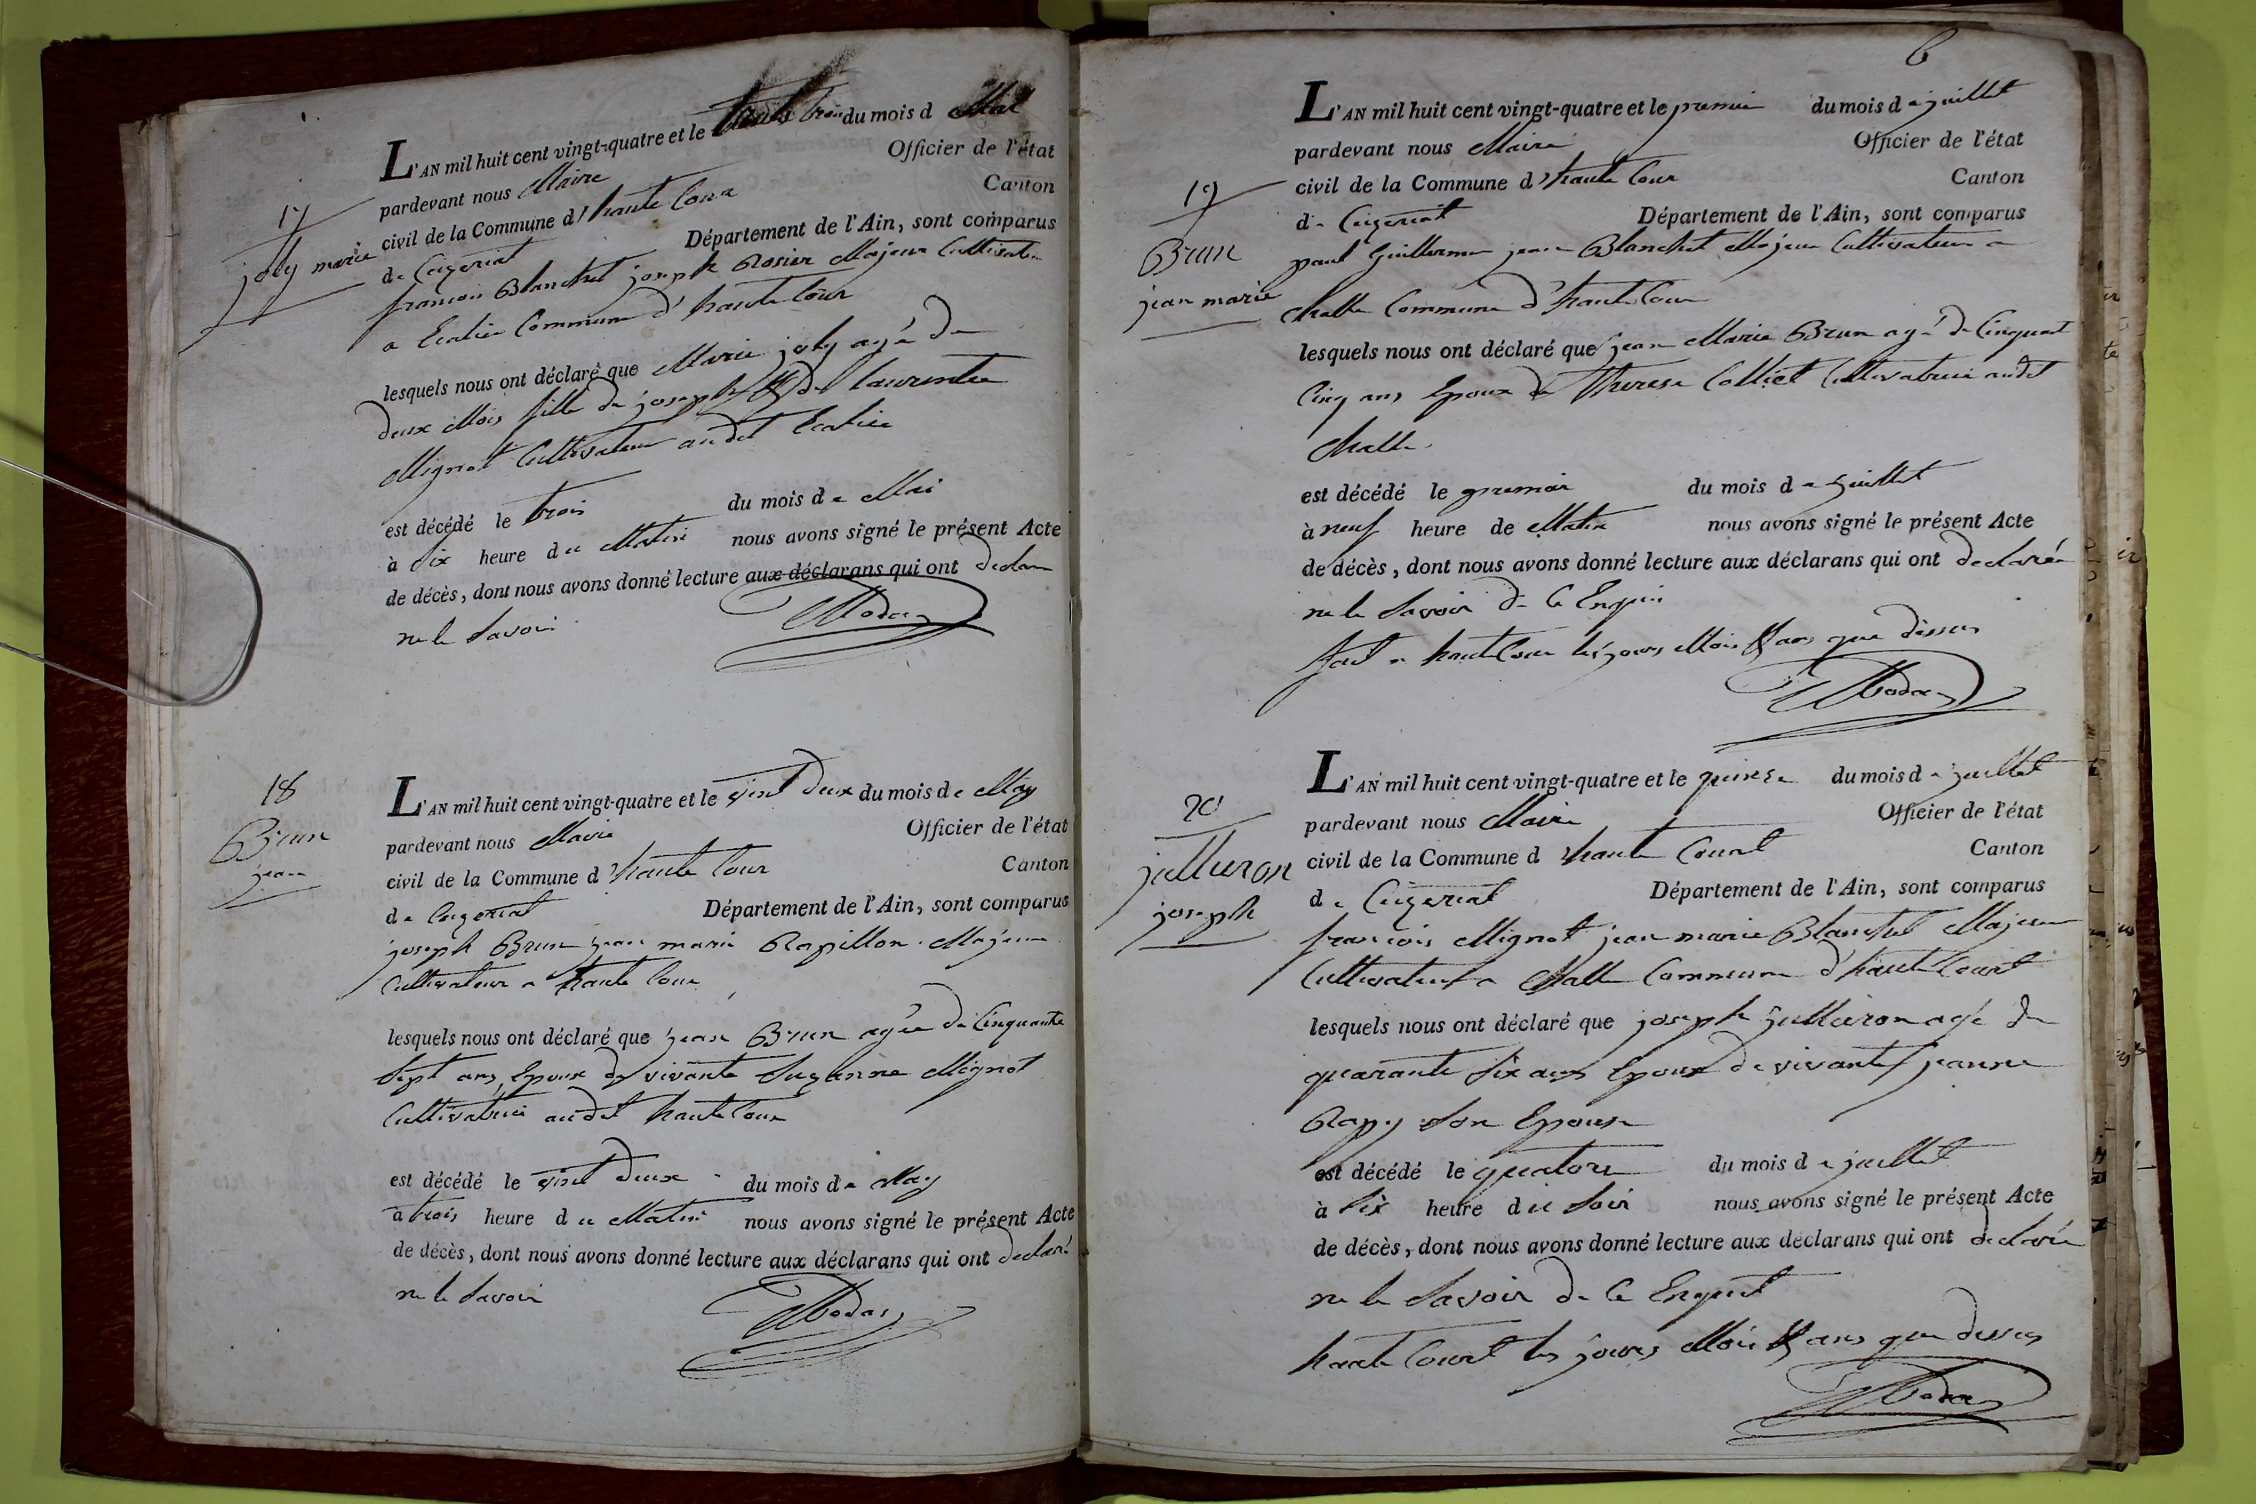 17
joly marie
L'AN mil huit cent vingt-quatre et le trois du mois d Mai
pardevant nous Maire Officier de l'état
civil de la Commune d'haute Cour Canton
de Ceyzeriat Département de l'Ain, sont comparus
francois Blanchet joseph Rosier Majeur Cultivateur
a Commune d'haute Cour
lesquels nous ont déclaré que Marie joly agé de
deux Mois fille de joseph & de laurentine
Mignot Cultivateur audit
est décédé le trois du mois de Mai
à six heure du Matin nous avons signé le présent Acte
de décès, dont nous avons donné lecture aux déclarans qui ont declare
ne le Savoir
18
Brun
jean
L'AN mil huit cent vingt-quatre et le vint deux du mois de May
pardevant nous Maire Officier de l'état
civil de la Commune d haute Cour Canton
de Ceyzeriat Département de l'Ain, sont comparus
joseph Brun jean marie Rapillon Majeur
Cultivateur a haute Cour
lesquels nous ont déclaré que jean Brun agée de Cinquante
Sept ans Epoux de vivante Suzanne Mignot
Cultivatrice audit haute Cour
est décédé le vint deux du mois de May
à trois heure du Matin nous avons signé le présent Acte
de décès, dont nous avons donné lecture aux déclarans qui ont declaré
ne le Savoir
6
19
Brun
jean marie
L'AN mil huit cent vingt-quatre et le premier du mois de juillet
pardevant nous Maire Officier de l'état
civil de la Commune d'haute Cour Canton
de Ceizeriat Département de l'Ain, sont comparus
paul Guillermin jean Blanchet Majeur Cultivateur a
Challe Commune d'haute Cour
lesquels nous ont déclaré que jean Marie Brun agé de Cinquant
Cinq ans Epoux de Therese Colliet Cultivatrice audit
Challe
est décédé le premier du mois de juillet
à neuf heure de Matin nous avons signé le présent Acte
de décès, dont nous avons donné lecture aux déclarans qui ont declaré
ne le Savoir de Ce Enquis
fait a haute Cour les jours Mois & ans que dessus
20
julluron
joseph
L'AN mil huit cent vingt-quatre et le quinze du mois de juillet
pardevant nous Maire Officier de l'état
civil de la Commune d haute Court Canton
de Ceizeriat Département de l'Ain, sont comparus
francois Mignot jean marie Blanchet Majeur
Cultivateur a Challe Commune d'haute Court
lesquels nous ont déclaré que joseph julluron agé de
quarante six ans Epoux de vivante jeanne
Rapy Son Epouse
est décédé le quatorze du mois de juillet
à Six heure du Soir nous avons signé le présent Acte
de décès, dont nous avons donné lecture aux déclarans qui ont declaré
ne le Savoir de Ce Enquit
haute Court les jours Mois & ans que dessus